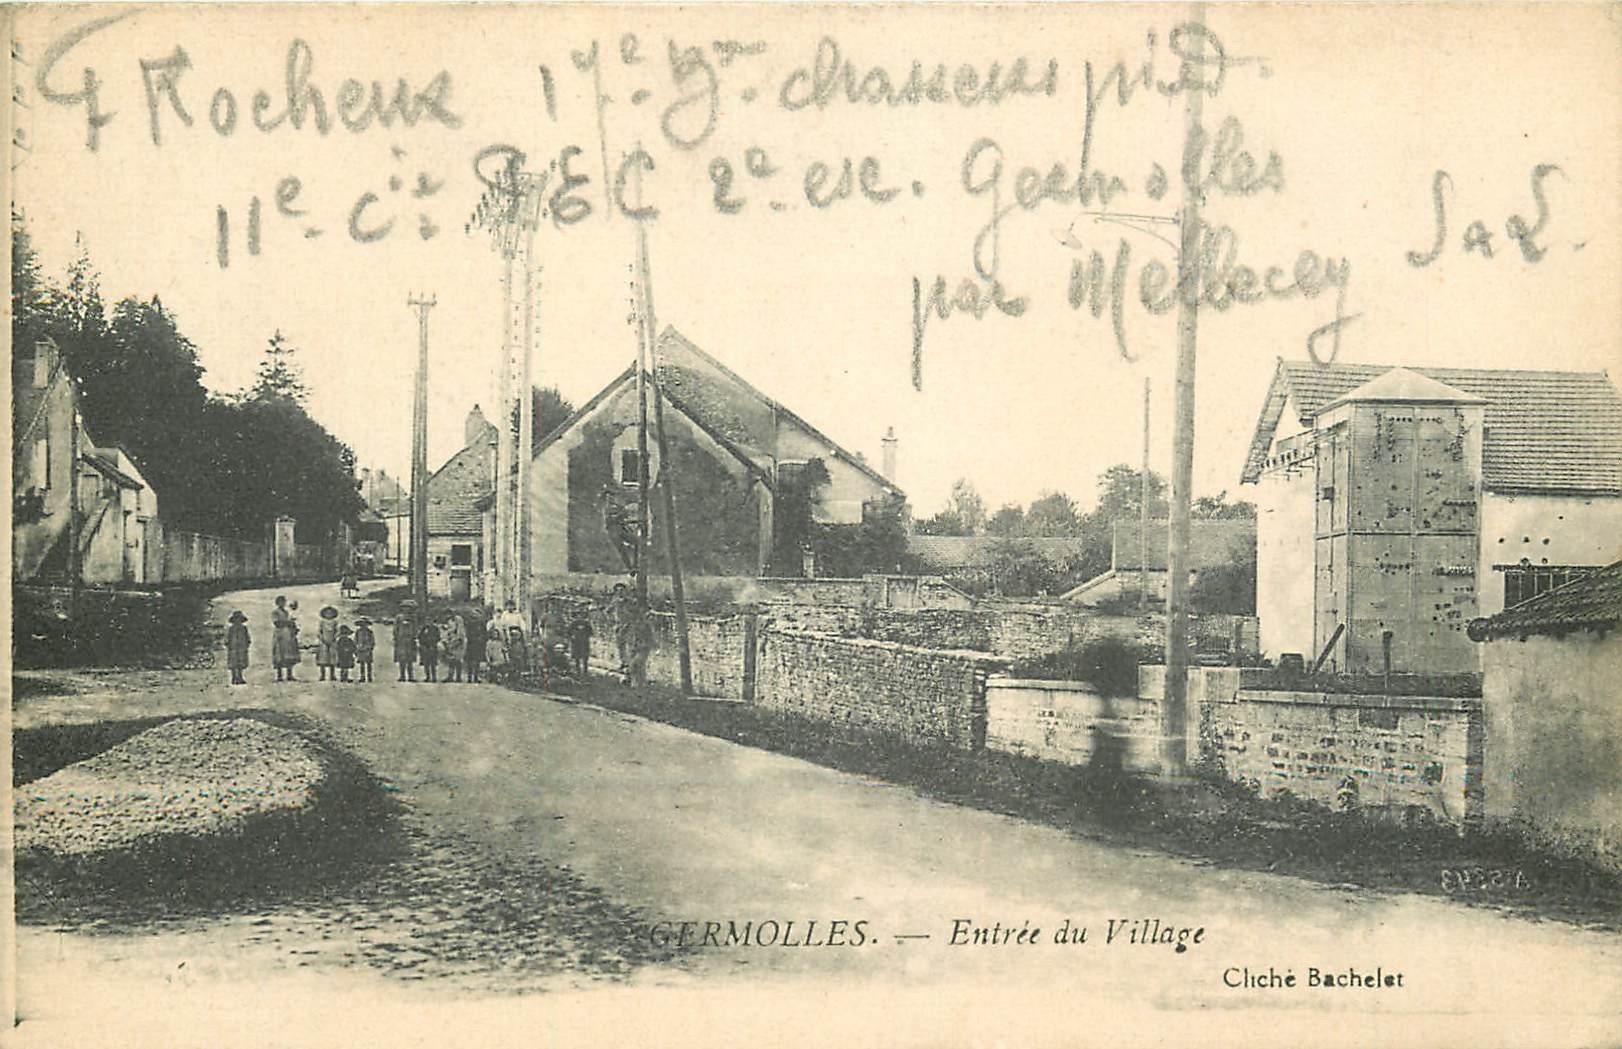 G Rocheux 17e. Bon. chasseurs pied.
11e. Cie. PEC 2e. esc. Germolles
par Mellecey S a L.
GERMOLLES. — Entrée du Village
Cliché Bachelet